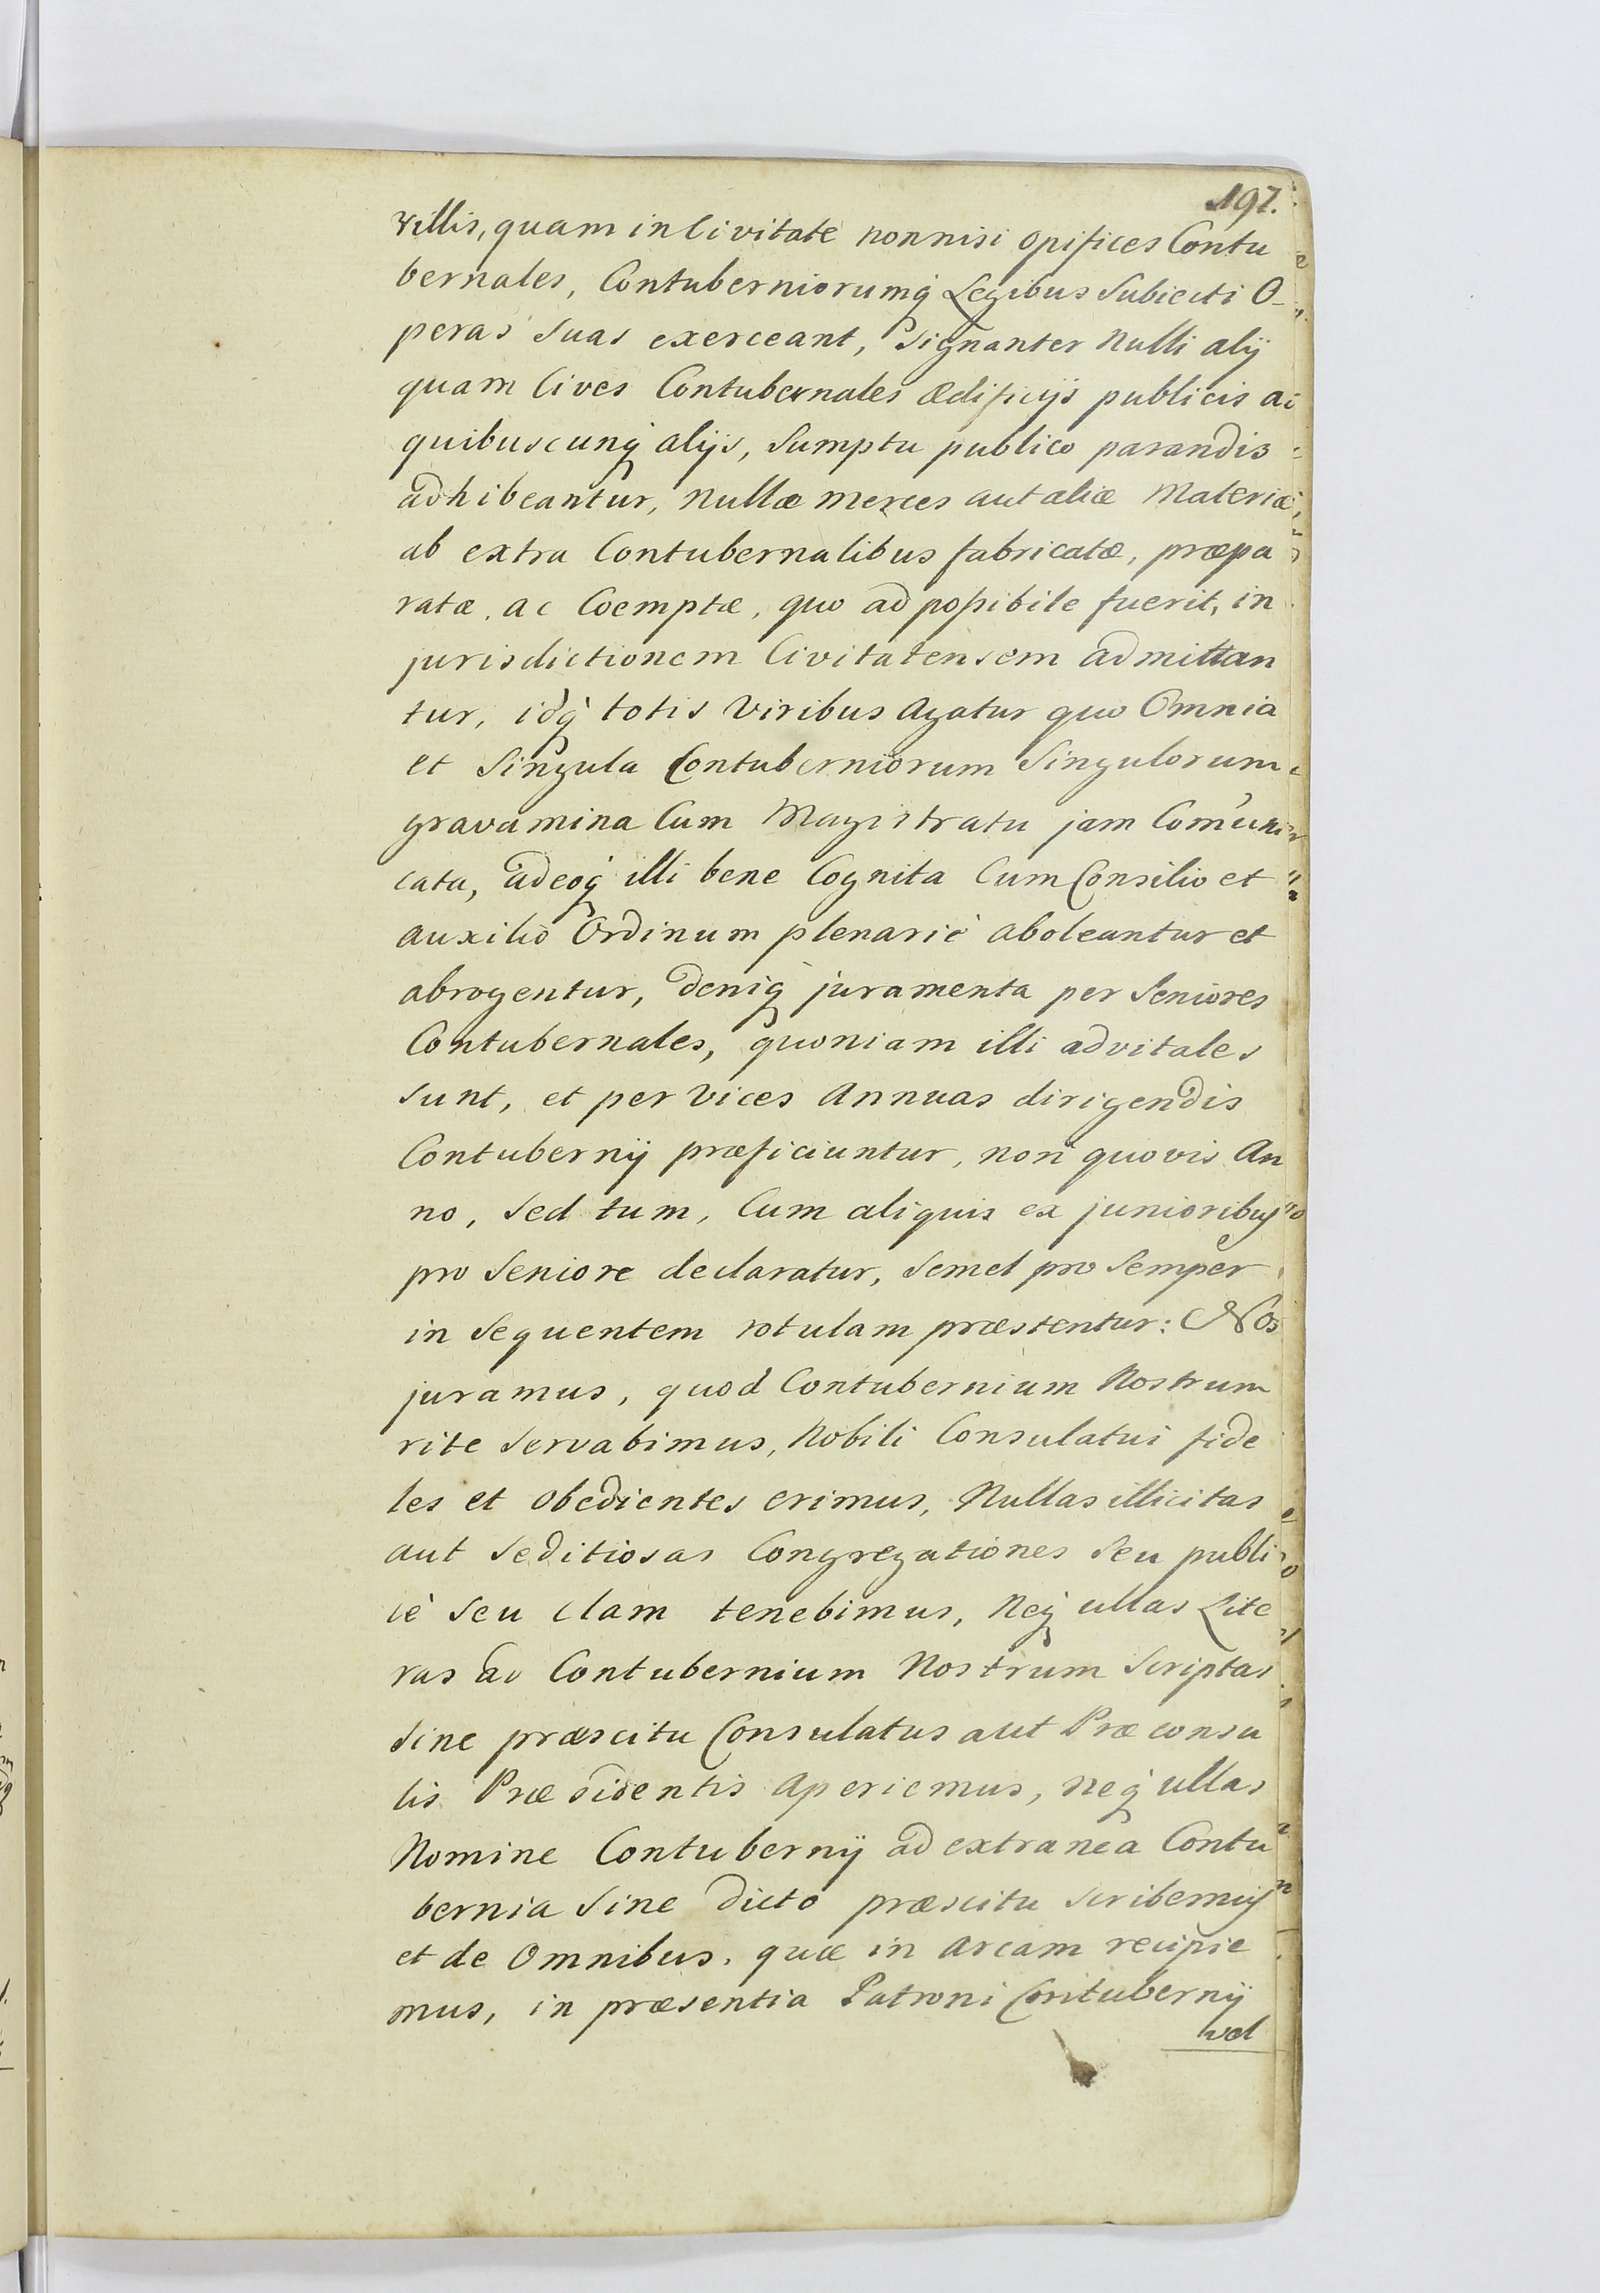 197.
villis, quam in Civitate nonnisi Opifices Contu
bernales, Contuberniorumq́ Legibus Subiecti O-
peras suas exerceant, signanter Nulli alÿ
quam Cives Contubernales ædificÿs publicis ac
quibuscunq́ alÿs, Sumptu publico parandis
adhibeantur, Nullæ merces aut aliæ Materiæ
ab extra Contubernalibus fabricatæ, præpa
ratæ, ac Coemptæ, quo ad possibile fuerit, in
jurisdictionem Civitatensem admittan
tur, idq́ totis Viribus Agatur quo Omnia
et Singula Contuberniorum Singulorum
gravamina Cum Magistratu jam Com̃uni
cata, adeoq́ illi bene Cognita Cum Consilio et
auxilio Ordinum plenariè aboleantur et
abrogentur, deniq́ juramenta per Seniores
Contubernales, quoniam illi advitales
sunt, et per Vices Annuas dirigendis
Contubernÿ præficiuntur, non quovis An
no, sed tum, Cum aliquis ex junioribus
pro Seniore declaratur, Semel pro Semper
in Sequentem rotulam præstentur: Nos
juramus, quod Contubernium Nostrum
rite Servabimus, Nobili Consulatui fide
les et Obedientes erimus, Nullas illicitas
aut Seditiosas Congregationes Seu publi
cè seu clam tenebimus, Neq́ ullas Lite
ras ad Contubernium Nostrum Scriptas
Sine præscitu Consulatus aut Præconsu
lis Præsidentis Aperiemus, neq́ ullas
Nomine Contubernÿ ad extranea Contu
bernia Sine dicto præscitu Scribemus
et de Omnibus, quæ in Arcam recipie
mus, in præsentia Patroni Contubernÿ
vel